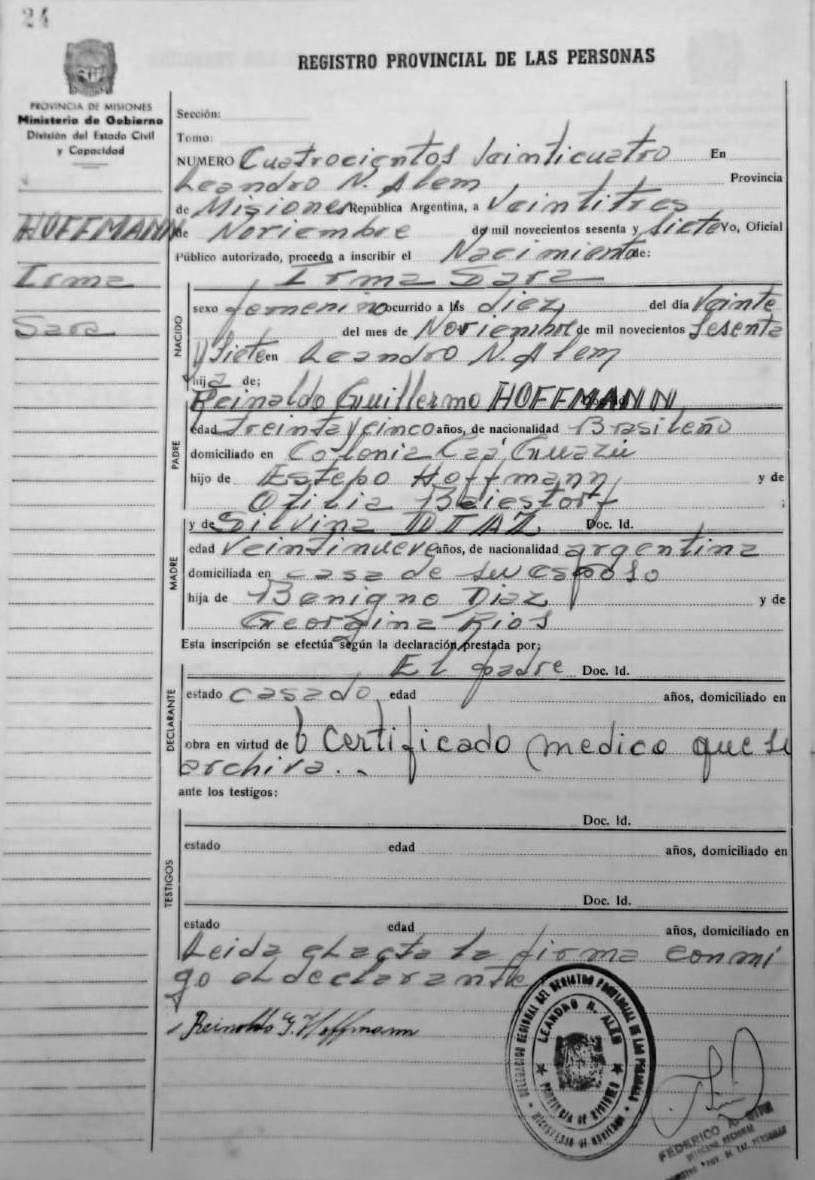 24
REGISTRO PROVINCIAL DE LAS PERSONAS
PROVINCIA DE MISIONES
Ministerio de Gobierno
División del Estado Civil
y Capacidad
HOFFMANN
Irma
Sara
Sección:
Tomo:
NUMERO Cuatrocientos Veinticuatro En
Leandro N. Alem Provincia
de Misiones República Argentina, a Veintitres
de Noviembre de mil novecientos sesenta y Siete Yo, Oficial
Público autorizado, procedo a inscribir el Nacimiento de:
Irma Sara
NACIDO
sexo femenino ocurrido a las diez del día Veinte
del mes de Noviembre de mil novecientos Sesenta
y Siete en Leandro N. Alem
hija de;
Reinaldo Guillermo HOFFMANN
PADRE
edad Treinta y cinco años, de nacionalidad Brasileño
domiciliado en Colonia Caá Guazú
hijo de Estepo Hoffmann y de
Otilia Baiestorf ;
y de Silvina DIAZ Doc. Id.
MADRE
edad Veintinueve años, de nacionalidad argentina
domiciliada en casa de su esposo
hija de Benigno Diaz y de
Georgina Rios
Esta inscripción se efectúa según la declaración prestada por;
El padre Doc. Id.
DECLARANTE
estado casado, edad años, domiciliado en
obra en virtud de certificado medico que se
archiva..
ante los testigos:
Doc. Id.
TESTIGOS
estado edad años, domiciliado en
Doc. Id.
estado edad años, domiciliado en
Leida el acta la firma conmi
go el declarante
Reinoldo G. Hoffmann
DELEGACION REGIONAL DEL REGISTRO PROVINCIAL DE LAS PERSONAS
LEANDRO N. ALEM
PROVINCIA DE MISIONES
FEDERICO A.